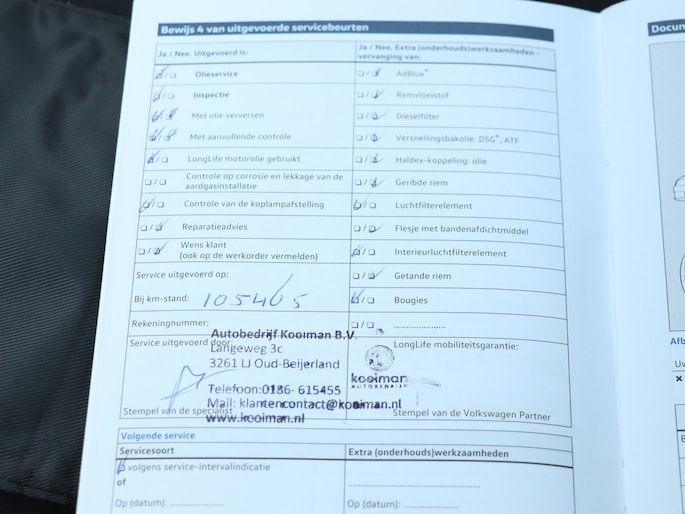 Bewijs 4 van uitgevoerde servicebeurten
Docum
Ja / Nee. Uitgevoerd is:
Olieservice
Inspectie
Met olie verversen
Met aanvullende controle
LongLife motorolie gebruikt
Controle op corrosie en lekkage van de
aardgasinstallatie
Controle van de koplampafstelling
Reparatieadvies
Wens klant
(ook op de werkorder vermelden)
Service uitgevoerd op:
Bij km-stand: 105405
Rekeningnummer:
Service uitgevoerd door:
Autobedrijf Kooiman B.V.
Langeweg 3c
3261 LJ Oud-Beijerland
Telefoon:0186- 615455
Mail: klantencontact@kooiman.nl
www.kooiman.nl
Stempel van de specialist
Ja / Nee. Extra (onderhouds)werkzaamheden -
vervanging van:
AdBlue®
Remvloeistof
Dieselfilter
Versnellingsbakolie: DSG®, ATF
Haldex-koppeling: olie
Geribde riem
Luchtfilterelement
Flesje met bandenafdichtmiddel
Interieurluchtfilterelement
Getande riem
Bougies
LongLife mobiliteitsgarantie:
kooiman
AUTOBEDRIJF
Stempel van de Volkswagen Partner
Volgende service
Servicesoort
volgens service-intervalindicatie
of
Op (datum):
Extra (onderhouds)werkzaamheden
Op (datum):
Afb